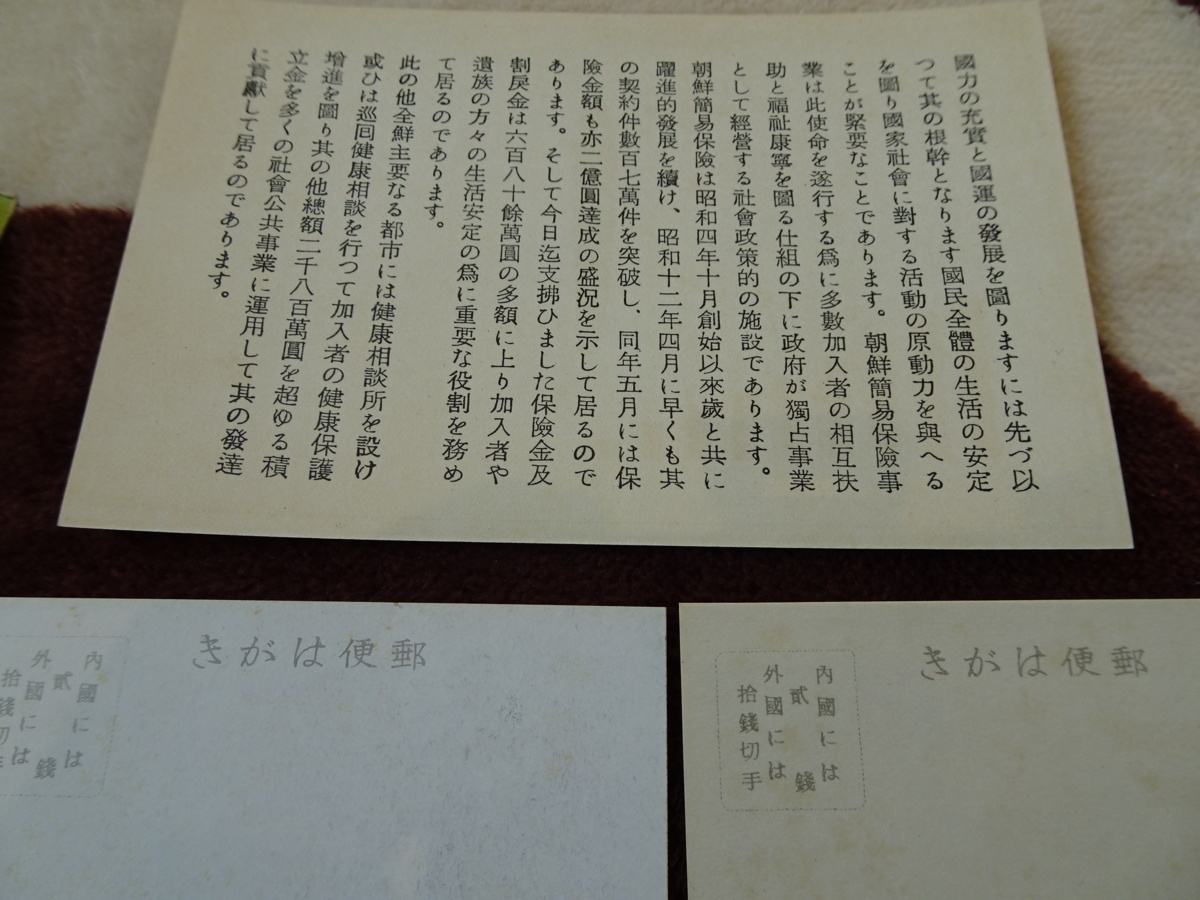 國力の充實と國運の發展を圖りますには先づ以
つて其の根幹となります國民全體の生活の安定
を圖り國家社會に對する活動の原動力を與へる
ことが緊要なことであります。朝鮮簡易保險事
業は此使命を遂行する爲に多數加入者の相互扶
助と福祉康寧を圖る仕組の下に政府が獨占事業
として經營する社會政策的の施設であります。
朝鮮簡易保險は昭和四年十月創始以來歲と共に
躍進的發展を續け、昭和十二年四月に早くも其
の契約件數百七萬件を突破し、同年五月には保
險金額も亦二億圓達成の盛況を示して居るので
あります。そして今日迄支拂ひました保險金及
割戾金は六百八十餘萬圓の多額に上り加入者や
遺族の方々の生活安定の爲に重要な役割を務め
て居るのであります。
此の他全鮮主要なる都市には健康相談所を設け
或ひは巡回健康相談を行つて加入者の健康保護
增進を圖り其の他總額二千八百萬圓を超ゆる積
立金を多くの社會公共事業に運用して其の發達
に貢獻して居るのであります。
郵便はがき
內國には
貳錢
外國には
拾錢切手
郵便はがき
內國には
貳錢
外國には
拾錢切手